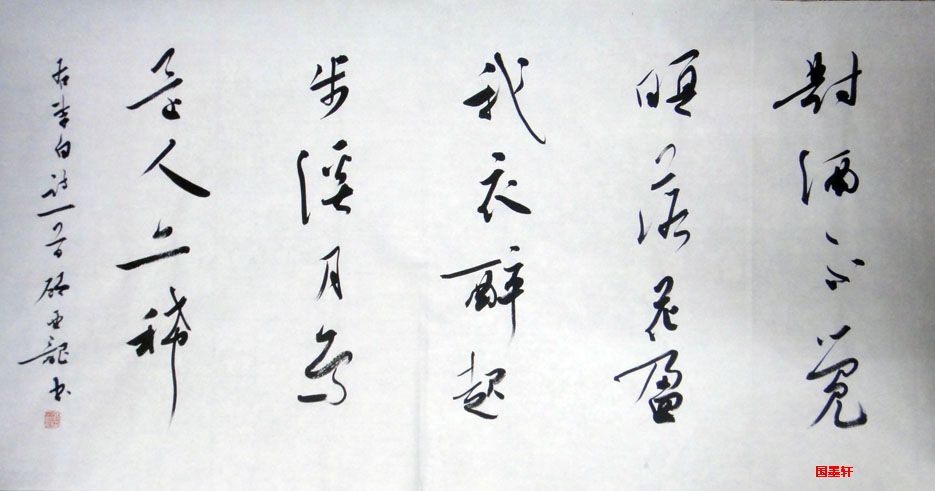 對酒不覺
暝落花盈
我衣醉起
步溪月鳥
還人亦稀
右李白詩一首顧亞龍書
国墨轩